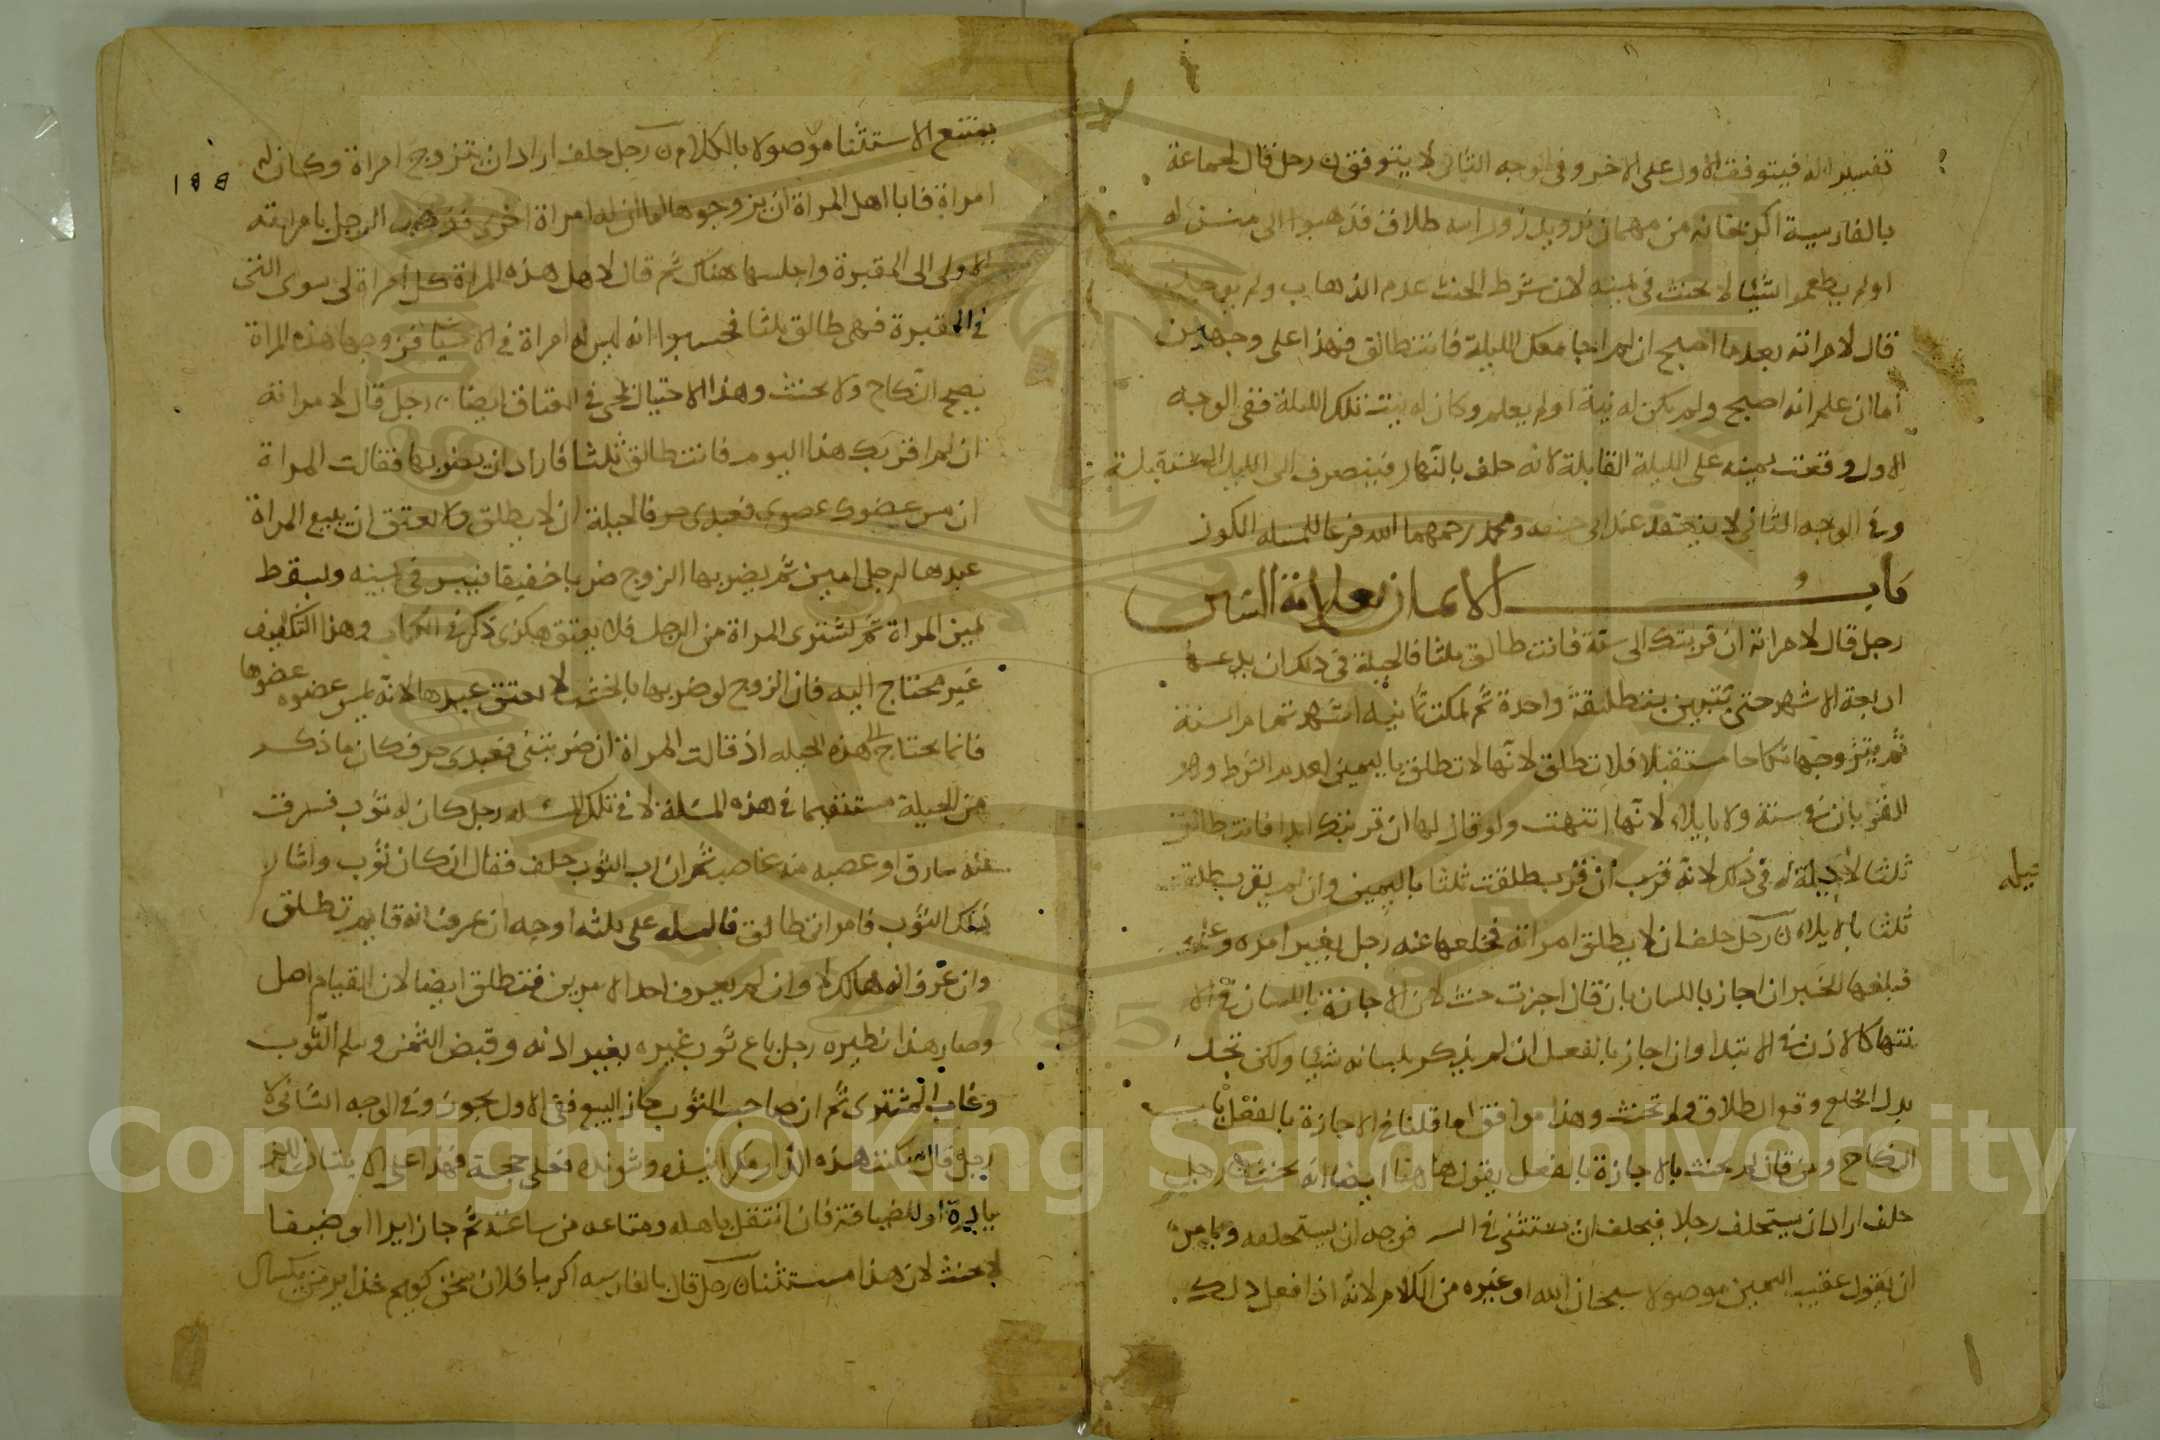 تفسيرا له فيتوقف الاول على الاخر وفي الوجه الثاني لا يتوقف ن رجل قال لجماعة
بالفارسية اكر بخانه من مهمان طلاق فذهبوا الى منزله
اولم يطعموا شيئا لا يحنث في يمينه لان شرط الحنث عدم الذهاب ولم يوجد
قال لامراته بعدما اصبح ان لم اجامعك الليلة فانت طالق فهذا على وجهين
اما ان علم انه اصبح ولم يكن له نية اولم يعلم وكان له نية تلك الليلة ففي الوجه
الاول وقعت يمينه على الليلة القابلة لانه حلف بالنهار فينصرف الى الليل المستقبلة
وفي الوجه الثاني لا ينعقد عند ابي حنيفة ومحمد رحمهما الله فرعا للمسله الكوز
باب الايمان بعلامة السين
رجل قال لامراته ان قربتك الى سنة فانت طالق ثلثا فالحيلة في ذلك ان يدعها
اربعة الاشهر حتى تبين بتطليقة واحدة ثم تمكث ثمانيه اشهر تمام السنة
ثم يتزوجها نكاحا مستقبلا فلا تطلق لانها لا تطلق باليمين لعدم الشرط وهو
القربان في سنة ولا بايلاء لانها انتهت ولو قال لها ان قربتك ابدا فانت طالق
ثلثا لا حيلة له في ذلك لانه قرب ان قرب طلقت ثلثا باليمين وان لم يقرب طلقت
ثلثا بالايلاء ن رجل حلف ان لا يطلق امراته فخلعها عنه رجل بغير امره
فبلغها الخبر ان اجاز باللسان بان قال اجزت حنث لان الاجازة باللسان في الا
نتها كالاذن في الابتدا وان اجاز بالفعل ان لم يذكر بلسانه شيئا ولكن
بدل الخلع وقع الطلاق ولم تحنث وهذا موافق لما قلنا في الاجازة بالفعل باب
النكاح ومن قال لم يحنث بالاجازة بالفعل يقول هاهنا ايضا انه يحنث رجل
حلف اراد ان يستحلف رجلا فيحلف ان يستثنى في السر فوجه ان يستحلفه ويامره
ان يقول عقيب اليمين موصولا سبحان الله او غيره من الكلام لانه اذا فعل ذلك
حيله
يمتنع الاستثنا موصولا بالكلام ن رجل حلف اراد ان يتزوج امراة وكان له
امراة فابا اهل المراة ان يزوجوها لما ان له امراة اخرى فذهب الرجل بامراته
الاولى الى المقبرة واجلسها هناك ثم قال لاهل هذه المراة كل امراة لي سوى التي
في المقبرة فهي طالق ثلثا فحسبوا انه ليس له امراة في الاحيا فزوجها هذه المراة
يصح النكاح ولا يحنث وهذا الاحتيال يجي في العتاق ايضا ن رجل قال لامراته
ان لم اضربك هذا اليوم فانت طالق ثلثا فاراد ان يضربها فقالت المراة
ان مس عضوك عضوي فعبدي حر فالحيلة ان لا يطلق ولا يعتق ان يبيع المراة
عبدها لرجل امين ثم يضربها الزوج ضربا خفيفا فيبر في يمينه ويسقط
يمين المراة ثم تشتري المراة من الرجل فلا يعتق هكذى ذكر في الكتاب وهذا التكليف
غير محتاج اليه فان الزوج لو ضربها بالخشب لا يعتق عبدها لانه لم يمس عضوه عضوها
فانما يحتاج الى هذه الحيله اذ قالت المراة ان ضربتني فعبدي حر فكان ما ذكر
من الحيلة مستقيما في هذه المسئلة لا في تلك المسئله رجل كان له ثوب فسرقت
منه سارق او غصبه منه غاصب ثم ان رب الثوب حلف فقال ان كان ثوب واشار
تلك الثوب فامراتي طالق فالمسله على ثلثه اوجه ان عرف انه قايم تطلق
وان عرف انه هالك لا وان لم يعرف احد الامرين فتطلق ايضا لان القيام اصل
وصار هذا نظيره رجل باع ثوب غيره بغير اذنه وقبض الثمن وسلم الثوب
وغاب المشتري ثم ان صاحب الثوب جاز البيع ففي الاول يجوز وفي الوجه الثاني لا
رجل قال ان سكنت هذه الدار فعلى حجة فهذا على
او للضيافة فان انتقل باهله ومتاعه من ساعته ثم جاز ايرا او ضيفا
لا يحنث لان هذا مستثنا ن رجل قال بالفارسيه اكر با فلان سخن كويم